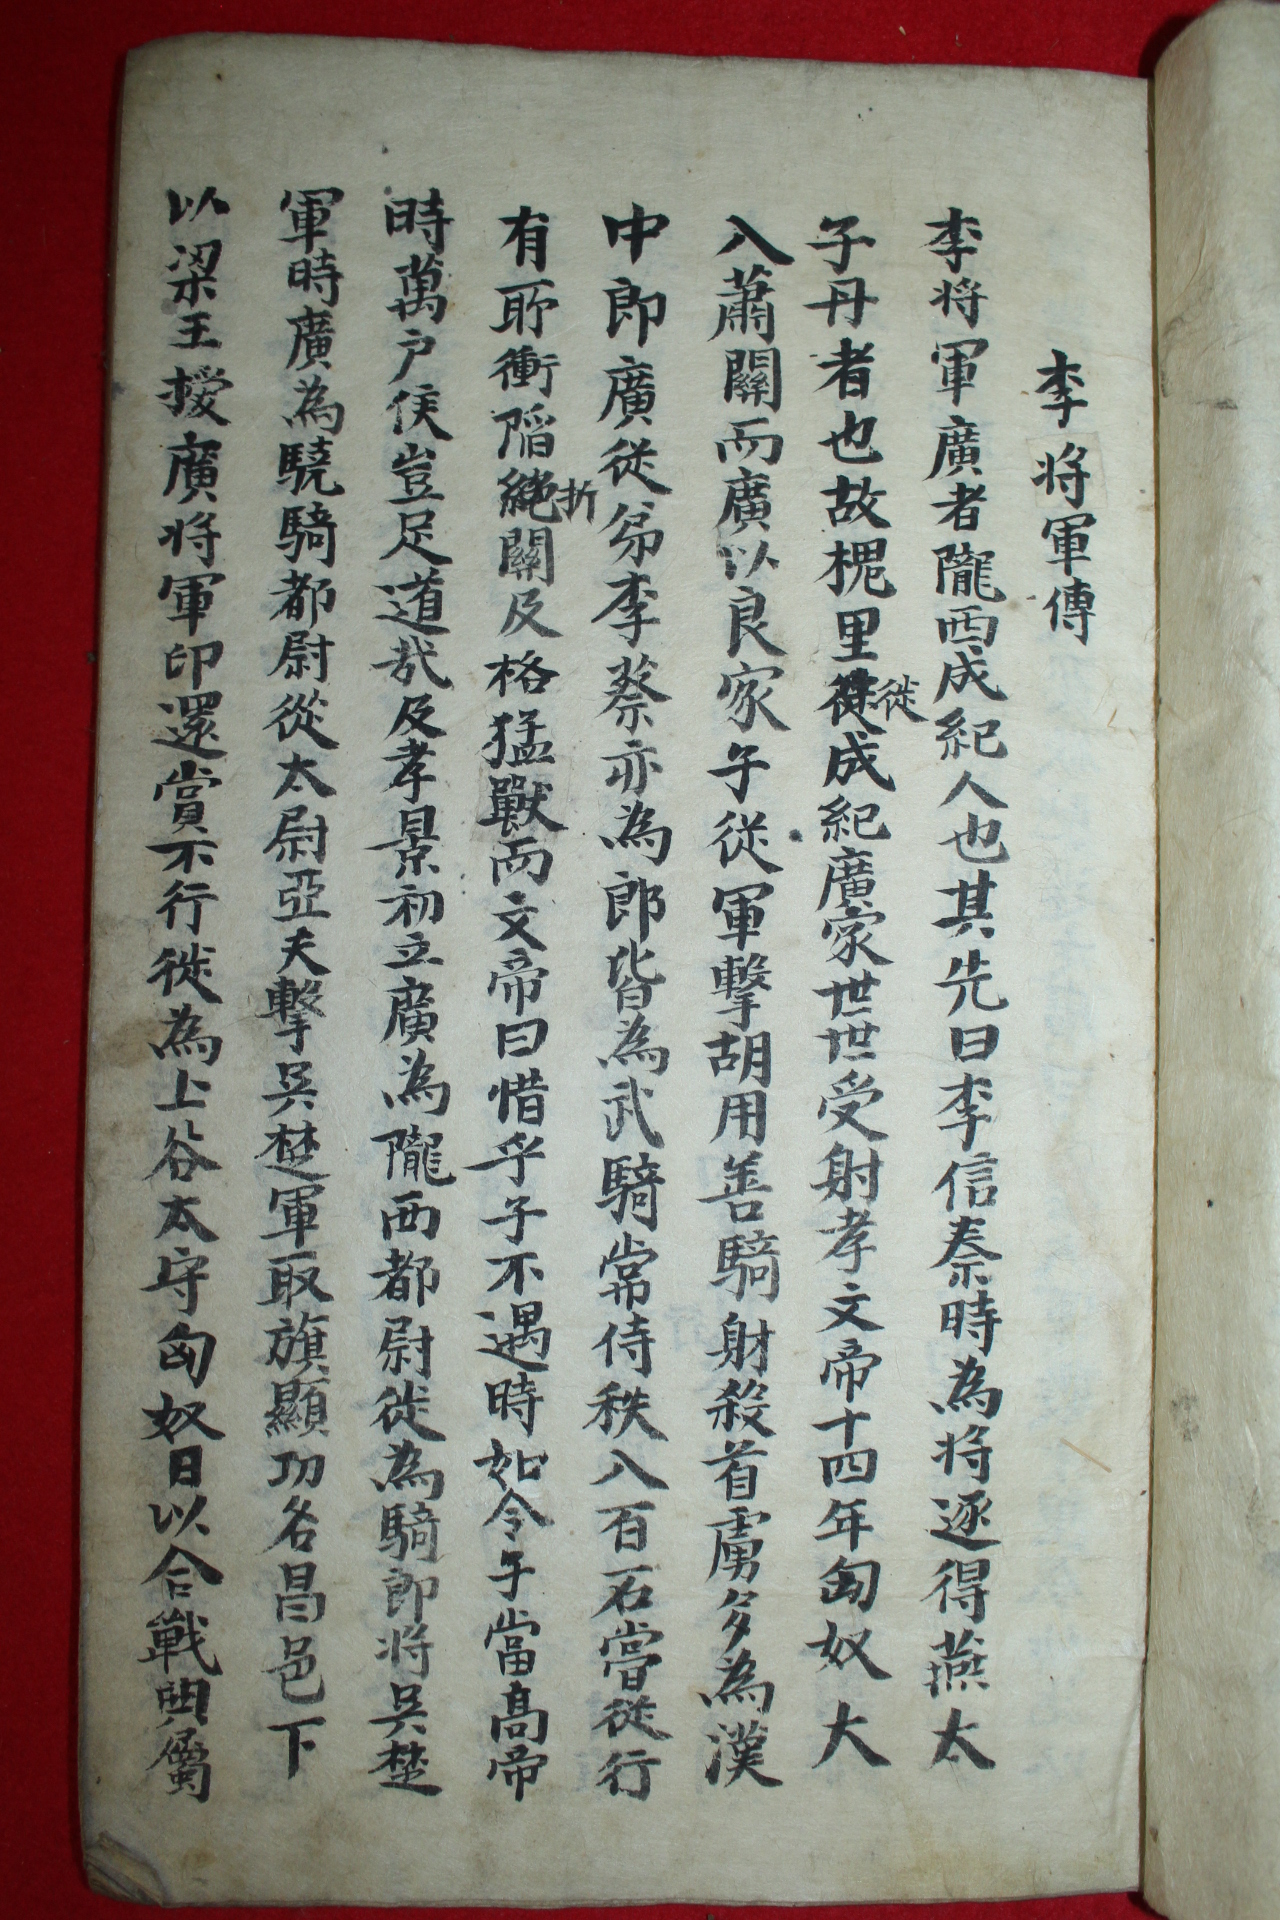 李將軍傳
李將軍廣者隴西成紀人也其先曰李信秦時為將逐得燕太
子丹者也故槐里徙成紀廣家世世受射孝文帝十四年匈奴大
入蕭關而廣以良家子從軍擊胡用善騎射殺首虜多為漢
中郎廣從弟李蔡亦為郎皆為武騎常侍秩八百石嘗從行
有所衝陷折關及格猛獸而文帝曰惜乎子不遇時如令子當高帝
時萬戶侯豈足道哉及孝景初立廣為隴西都尉徙為騎郎將吳楚
軍時廣為驍騎都尉從太尉亞夫擊吳楚軍取旗顯功名昌邑下
以梁王授廣將軍印還賞不行徙為上谷太守匈奴日以合戰典屬